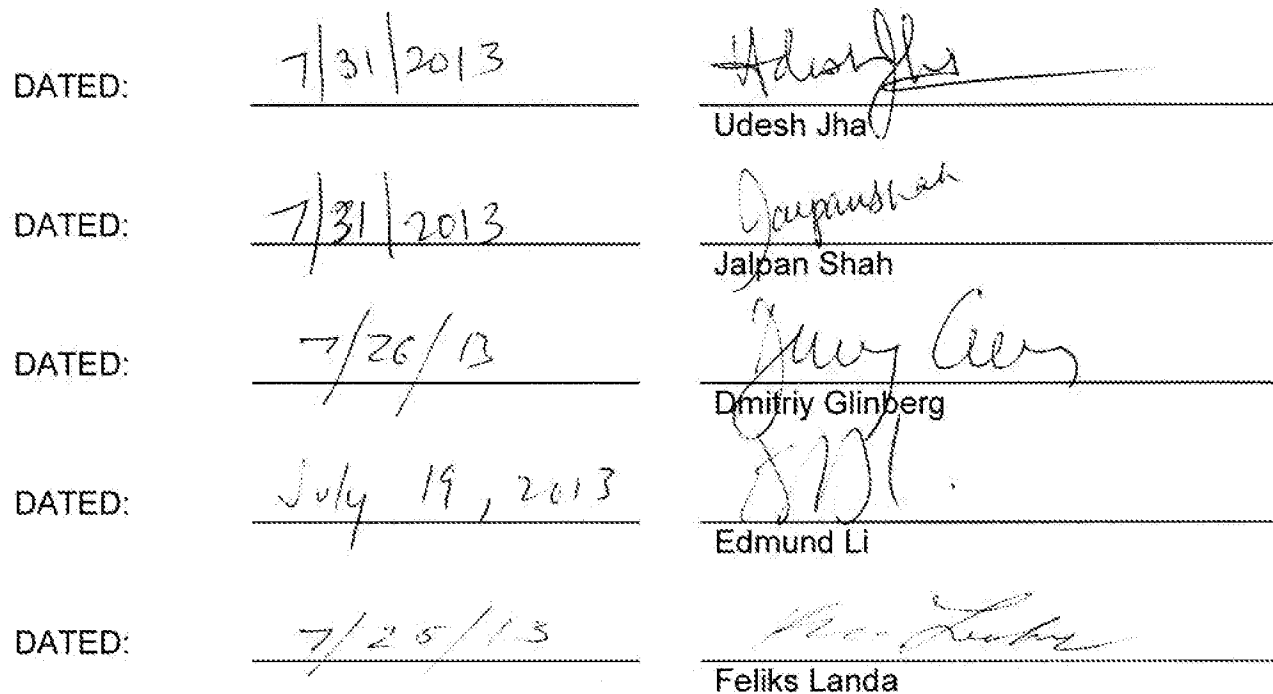 DATED: 7/31/2013 Udesh Jha
Udesh Jha
DATED: 7/31/2013 Jalpan Shah
Jalpan Shah
DATED: 7/26/13
Dmitriy Glinberg
DATED: July 19, 2013
Edmund Li
DATED: 7/25/13
Feliks Landa